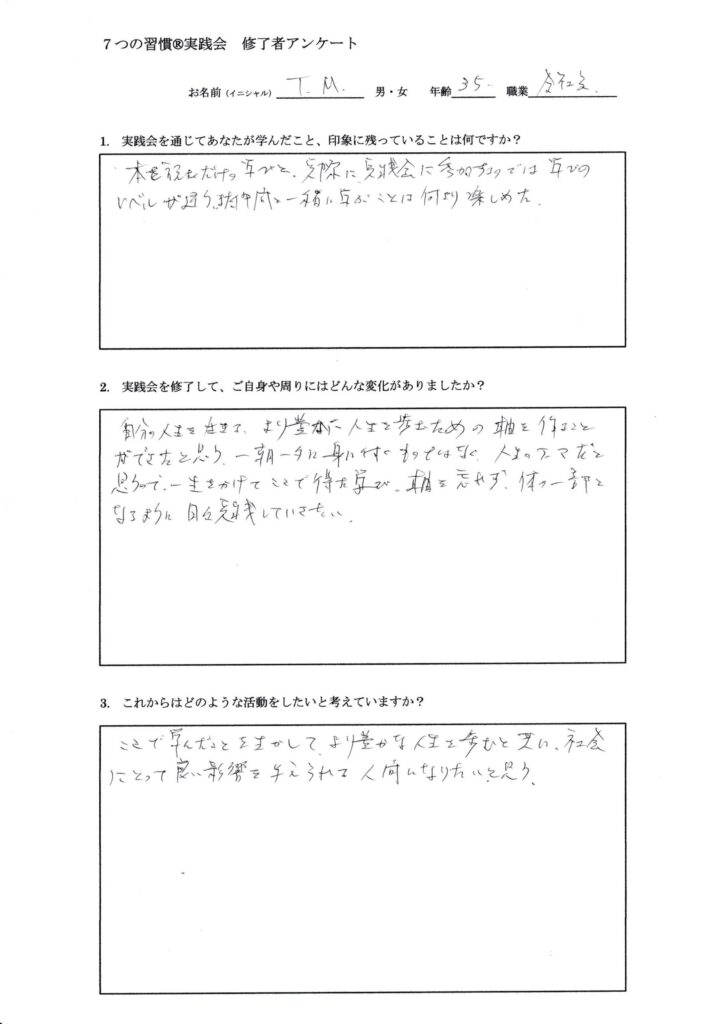 7つの習慣®実践会 修了者アンケート
お名前(イニシャル) T. M. 男・女 年齢 35. 職業 会社員.
1. 実践会を通じてあなたが学んだこと、印象に残っていることは何ですか？
本を読むだけの学びと、実際に実践会に参加するのでは学びの
レベルが違う。仲間と一緒に学ぶことは何より楽しめた.
2. 実践会を修了して、ご自身や周りにはどんな変化がありましたか？
自分の人生を 、より豊かな人生を歩むための軸を作ること
ができたと思う。一朝一夕に身に付くものではなく、人生のテーマだと
思うので、一生をかけてここで得た学び、軸を忘れず、体の一部と
なるように日々実践していきたい.
3. これからはどのような活動をしたいと考えていますか？
ここで学んだことを生かして、より豊かな人生を歩むと共に、社会
にとって良い影響を与えられる人間になりたいと思う.